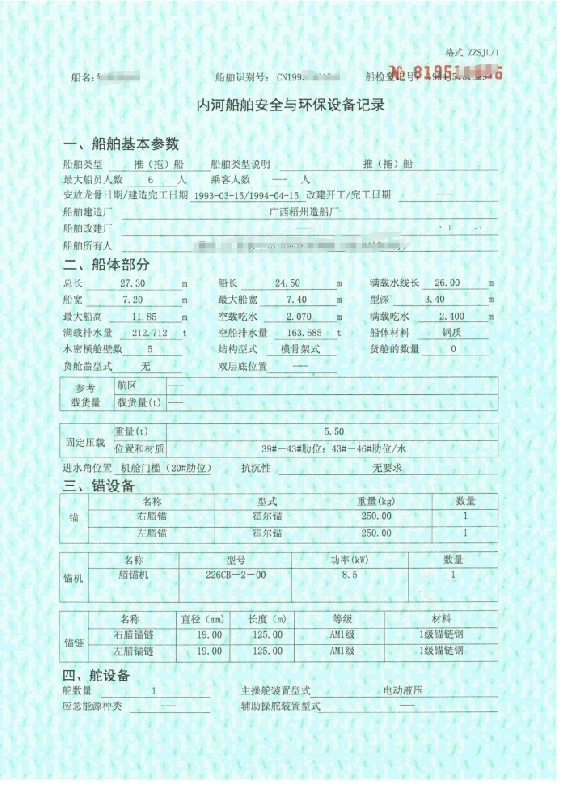 格式 ZZSJL/1
船名：
船舶识别号：CN199
船检登记号：
№ 81951
内河船舶安全与环保设备记录
一、船舶基本参数
船舶类型 推（拖）船 船舶类型说明 推（拖）船
最大船员人数 6 人 乘客人数 —— 人
安放龙骨日期/建造完工日期 1993-03-15/1994-04-15 改建开工/完工日期
船舶建造厂 广西梧州造船厂
船舶改建厂 ——
船舶所有人
二、船体部分
总长 27.30 m 船长 24.50 m 满载水线长 26.00 m
船宽 7.20 m 最大船宽 7.40 m 型深 3.40 m
最大船高 11.85 m 空载吃水 2.070 m 满载吃水 2.400 m
满载排水量 212.712 t 空船排水量 163.685 t 船体材料 钢质
水密横舱壁数 5 结构型式 横骨架式 货舱的数量 0
货舱盖型式 无 双层底位置 ——
参考载货量 航区 ——
载货量(t) ——
固定压载 重量(t) 5.50
位置和材质 39#—43#肋位；43#—46#肋位/水
进水角位置 机舱门槛（20#肋位） 抗沉性 无要求
三、锚设备
锚 名称 型式 重量(kg) 数量
右艏锚 霍尔锚 250.00 1
左艏锚 霍尔锚 250.00 1
锚机 名称 型号 功率(kW) 数量
艏锚机 226CB-2-00 8.5 1
锚链 名称 直径（mm） 长度（m） 等级 材料
右艏锚链 19.00 125.00 AM1级 1级锚链钢
左艏锚链 19.00 125.00 AM1级 1级锚链钢
四、舵设备
舵数量 1 主操舵装置型式 电动液压
应急能源种类 —— 辅助操舵装置型式 ——